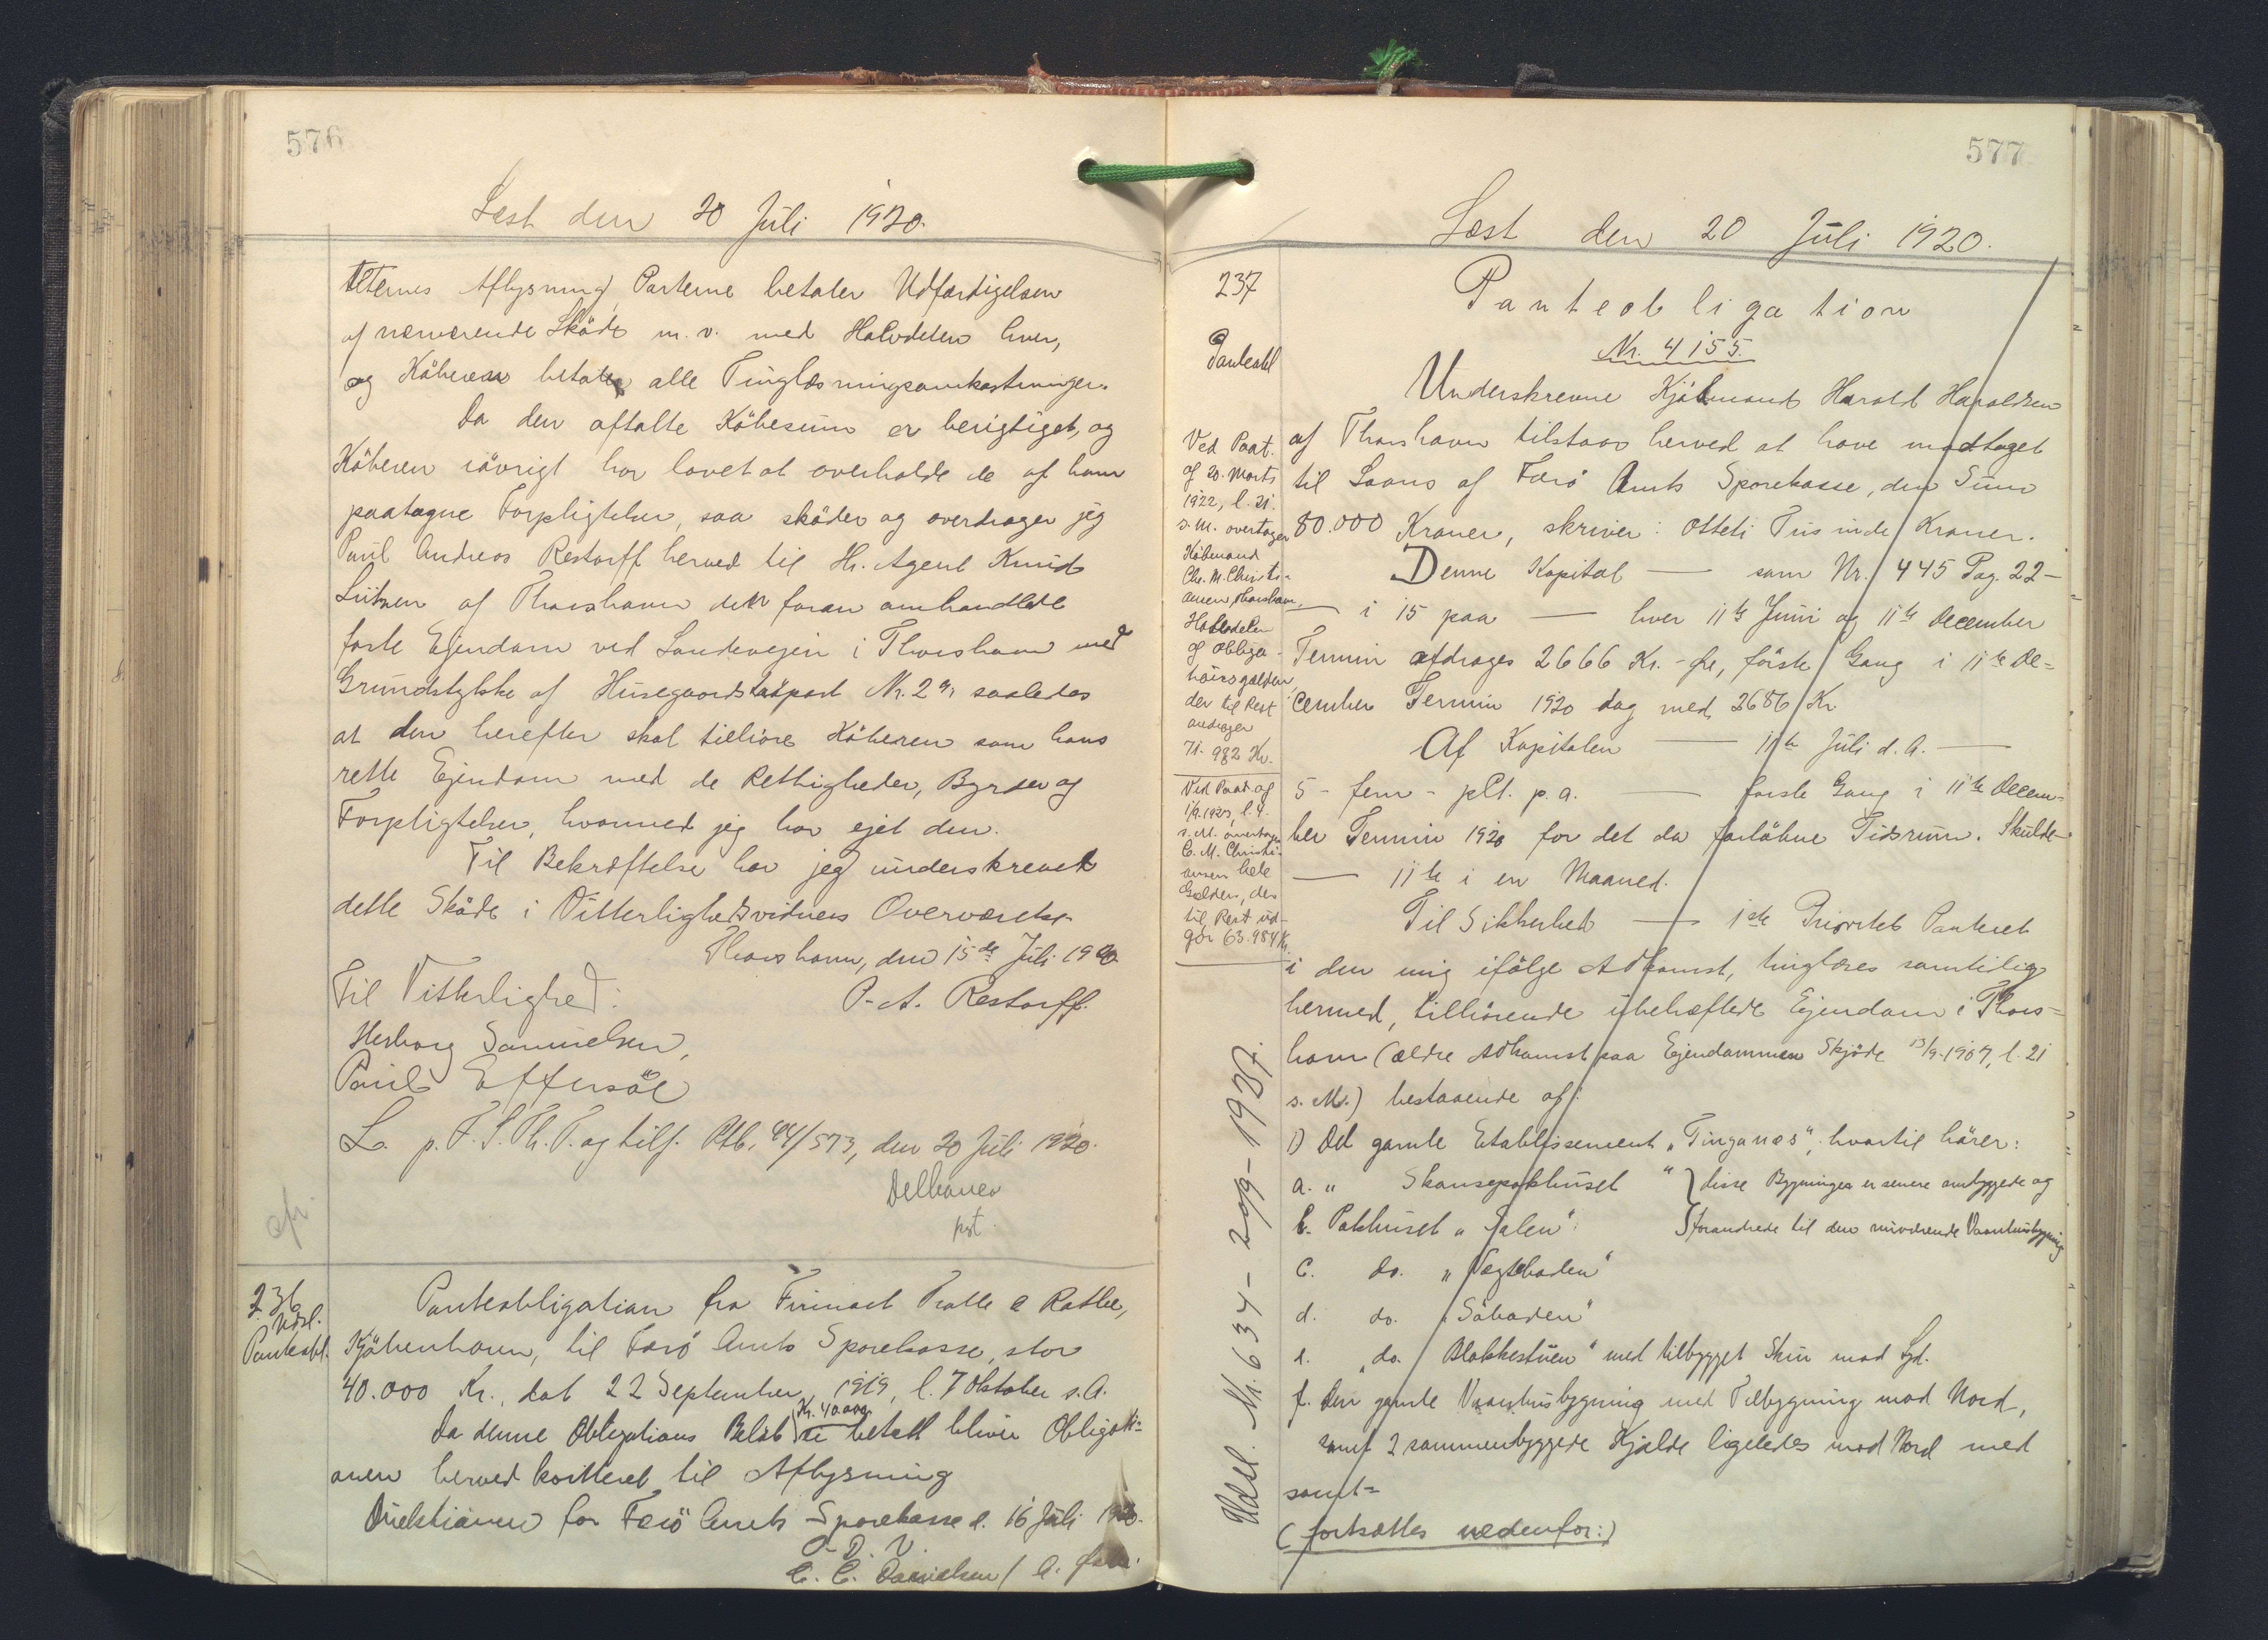 576
Læst den 20 Juli 1920.
Aflysning, Parterne betaler Udfærdigelsen
af nærværende Skøde m. v. med Halvdelen hver,
og Köberen betaler alle Tinglæsningsomkostninger.
Da den aftalte Köbesum er berigtiget, og
Köberen iövrigt har lovet at overholde de af ham
paatagne Forpligtelser, saa sköder og overdrager jeg
Paul Andreas Restorff herved til Hr. Agent Knud
Lützen af Thorshavn den foran omhandlede
faste Ejendom ved Landevejen i Thorshavn med
Grundstykke af Husegaards Nr. 2a, saaledes
at den herefter skal tilhöre Köberen som hans
rette Ejendom med de Rettigheder, Byrder og
Forpligtelser, hvormed jeg har ejet den.
Til Bekræftelse har jeg underskrevet
dette Sköde i Vitterlighedsvidners Overværelse.
Thorshavn, den 15de Juli 1920
Til Vitterlighed: P. A. Restorff.
Herborg Samuelsen,
Paul Effersöe
L. p. F. S. Th. T. og tilf. Ptb. 44/573, den 20 Juli 1920.
pst.
236
Udsl.
Panteobl.
Panteobligation fra Firmaet Trolle & Rothe,
Kjöbenhavn, til Færö Amts Sparekasse, stor
40.000 Kr., dat 22 September, 1919, l. 7 Oktober s. A.
Da denne Obligations Belöb Kr. 40000 er betalt bliver Obligati=
onen herved kvitteret til Aflysning
Direktionen for Færö Amts Sparekasse d. 16 Juli 1920.
O. D. V.
C. C. Danielsen /
577
Læst den 20 Juli 1920.
237
Panteobl
Panteobligation
Nr. 4155.
Underskrevne Kjöbmand Harald Haraldsen
af Thorshavn tilstaar herved at have modtaget
til Laans af Færö Amts Sparekasse, den Sum
80.000 Kroner, skriver: Otteti Tusinde Kroner.
Denne Kapital — som Nr. 445 Pag. 22 —
— i 15 paa — hver 11te Juni og 11te December
Termin afdrages 2666 Kr. - Öre, förste Gang i 11te De=
cember Termin 1920 dog med 2686 Kr
Af Kapitalen — 11te Juli d. A. —
5 - fem - pCt. p. a. — förste Gang i 11te Decem=
ber Termin 1920 for det da forlöbne Tidsrum. Skulde
— 11te i en Maaned.
Til Sikkerhed — 1ste Prioritets Panteret
i den mig ifölge Adkomst, tinglæses samtidig
hermed, tilhörende ubehæftede Ejendom i Thors=
havn (ældre Adkomst paa Ejendommen Skjöde 13/9-1907, l. 21
s. M.) bestaaende af:
1) Det gamle Etablissement "Tinganæs", hvortil hörer:
a. " Skansepakhuset " } disse Bygninger er senere ombyggede og
b. Pakhuset " Salen " } forandrede til den nuværende Vaaningsbygning
c. do. "Vagtboden"
d. do. "Söboden"
e. "do. Blokkestuen" med tilbygget Skur mod Syd.
f. Den gamle Vaaningsbygning med Tilbygning mod Nord,
samt 2 sammenbyggede Kjælde ligeledes mod Nord med
samt=
(fortsættes nedenfor:)
Ved Paat.
af 20. Marts
1922, l. 21.
s. M. overtager
Köbmand
Chr. M. Christi=
ansen, Thorshavn,
Halvdelen
af Obliga-
tionsgælden,
der til Rest
andrager
71.982 Kr.
Ved Paat. af
1/9.1923, l. 4.
s. M. overtager
C. M. Christi=
ansen hele
Gælden, der
til Rest ud-
gör 63.984 Kr.
Udsl. Nr. 634 - 29/9 - 1937.